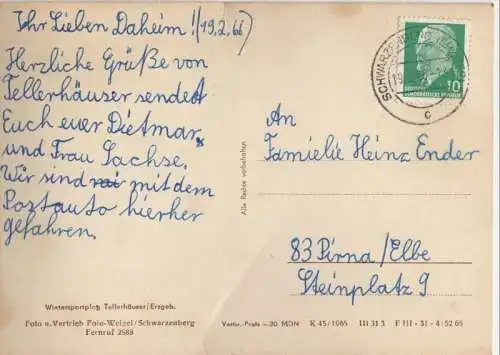 Ihr Lieben Daheim! (19.2.66)
Herzliche Grüße von
Tellerhäuser sendet
Euch euer Dietmar
und Frau Sachse.
Wir sind mit dem
Postauto hierher
gefahren.
Wintersportplatz Tellerhäuser/Erzgeb.
Foto u. Vertrieb Foto-Weigel/Schwarzenberg
Fernruf 2668
Alle Rechte vorbehalten
SCHWARZENBERG
c
10
DEUTSCHE
DEMOKRATISCHE REPUBLIK
An
Familie Heinz Ender
83 Pirna/Elbe
Steinplatz 9
Verbr.-Preis —20 MDN K 45/1965 III 31 3 F III - 31 - 4 · 52 65